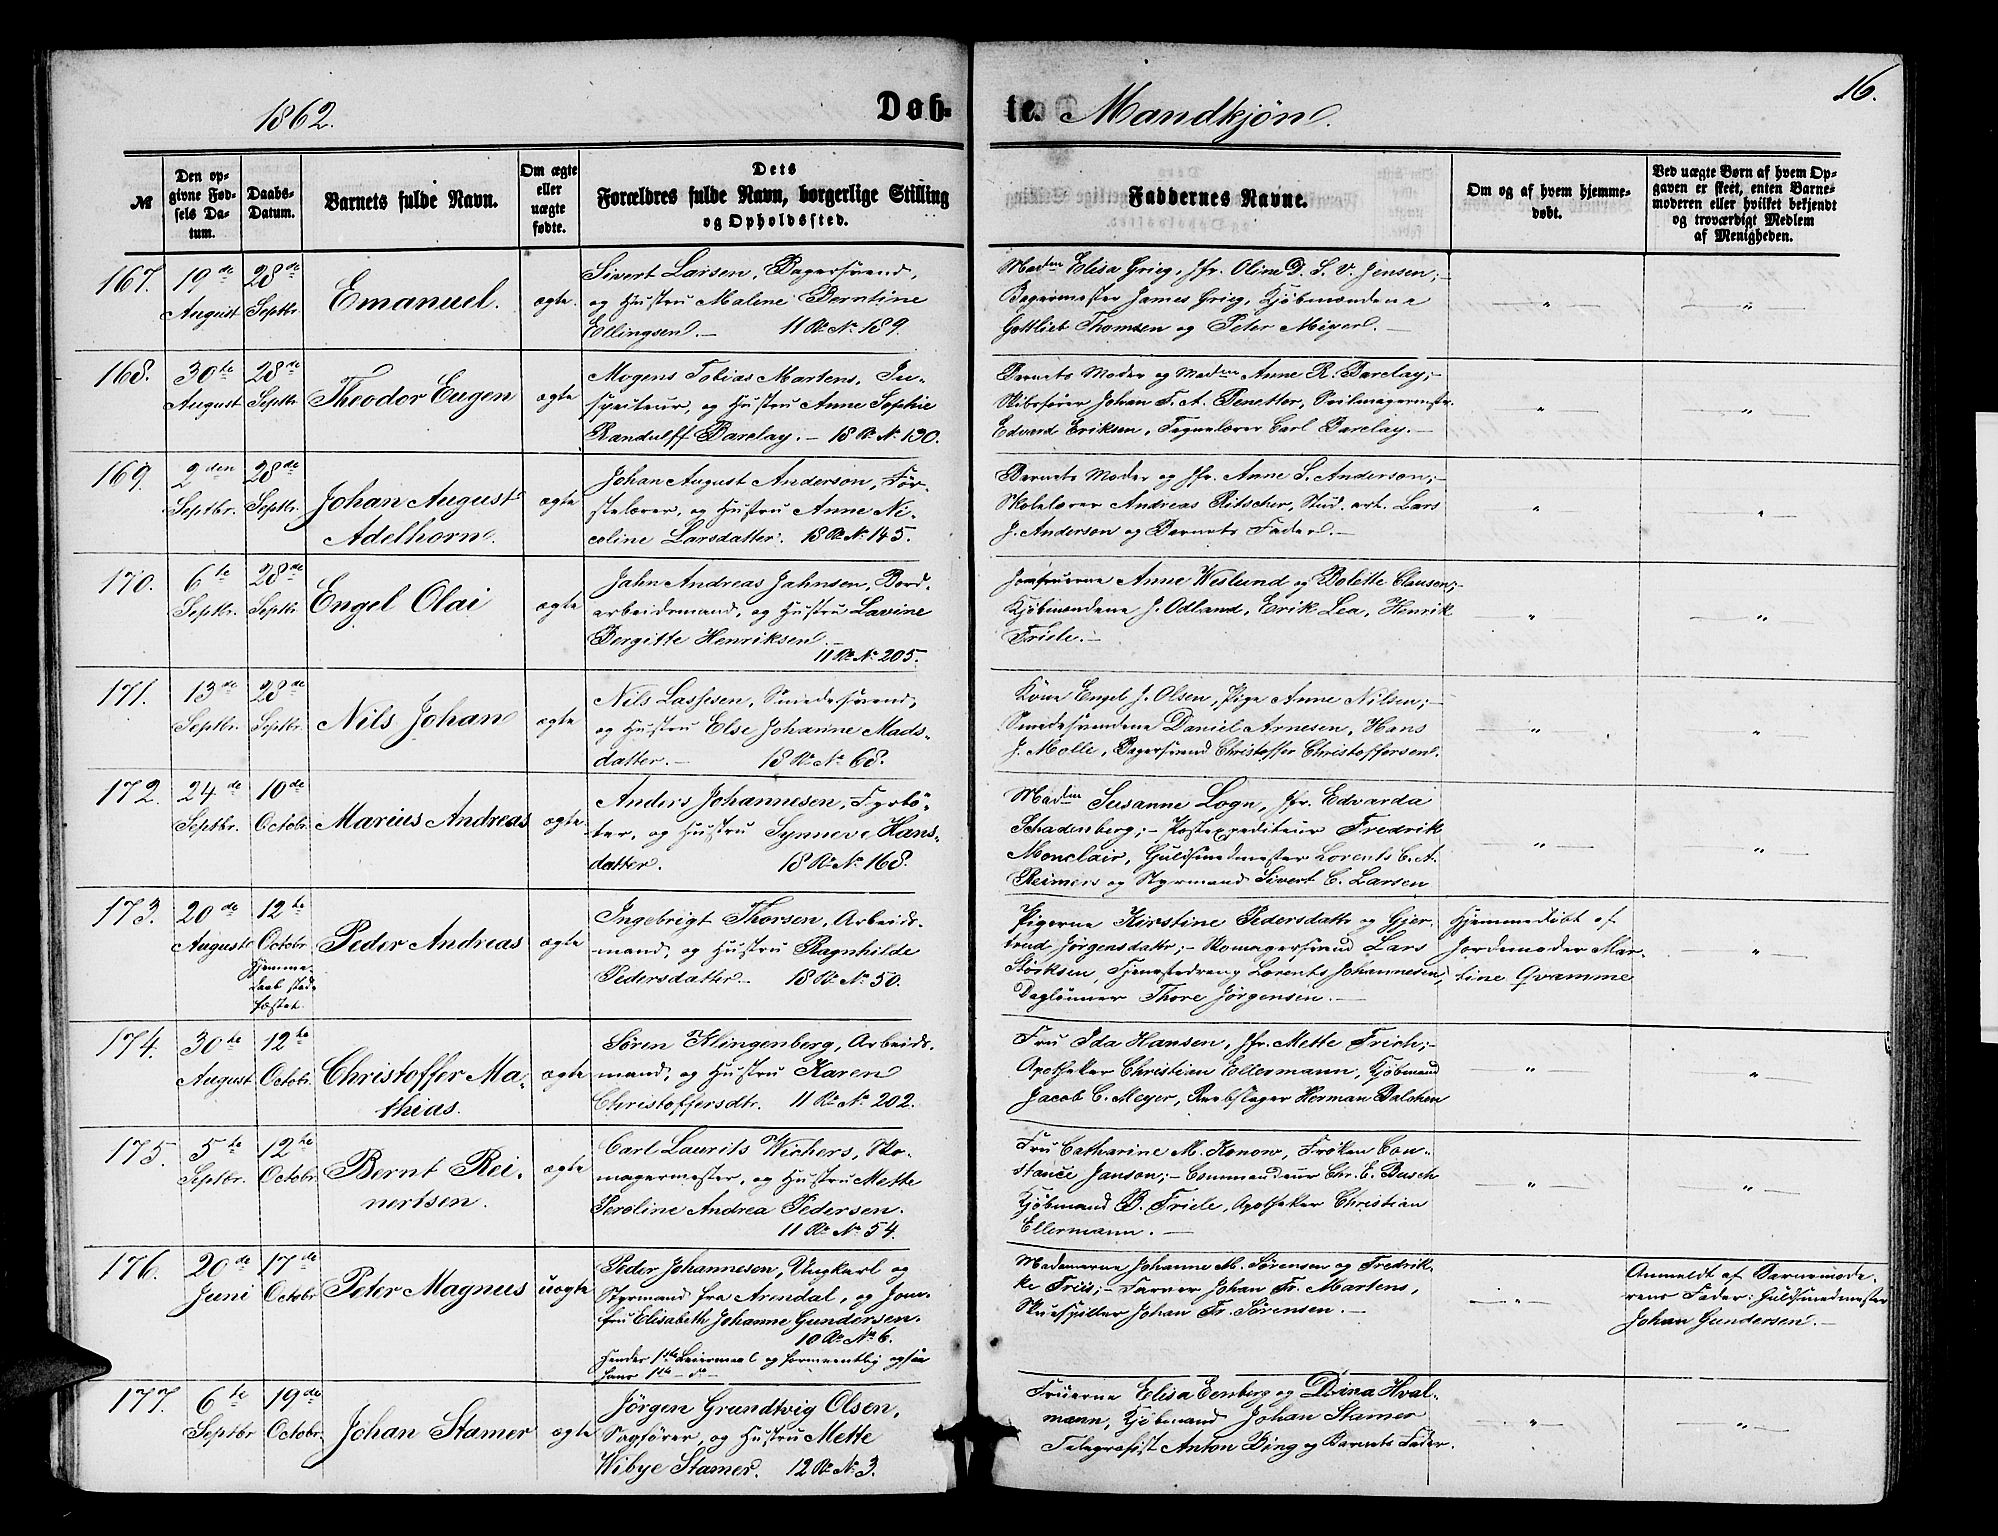 16.
1862.
Døb-
te. Mandkjøn.
№
Den op-
givne Fød-
sels Da-
tum.
Daabs-
Datum.
Barnets fulde Navn.
Om ægte
eller
uægte
fødte.
Dets
Forældres fulde Navn, borgerlige Stilling
og Opholdssted.
Faddernes Navne.
Om og af hvem hjemme-
døbt.
Ved uægte Børn af hvem Op-
gaven er skeet, enten Barne-
moderen eller hvilket bekjendt
og troværdigt Medlem
af Menigheden.
167. 19de August 28de Septbr. Emanuel. ægte.
Sivert Larsen, Bagersvend,
og Hustru Malene Berntine
Ellingsen. — 11 R. No. 189.
Madm Elisa Grieg, Jfr. Oline D. S. V. Jensen; —
Bagermester James Grieg, Kjøbmændene
Gottlieb Thomsen og Peter Meyer. —
168. 30te August 28de Septbr. Theodor Eugen ægte
Mogens Tobias Martens, In-
specteur, og Hustru Anne Sophie
Randulff Barclay. — 18 R. No. 130.
Barnets Moder og Madm Anne R. Barclay; —
Skibsfører Johan F. A. Penetter, Seilmagermstr.
Edvard Eriksen, Tegnelærer Carl Barclay. —
169. 2den Septbr. 28de Septbr. Johan August
Adelhorn. ægte
Johan August Anderson, For-
stelærer, og Hustru Anne Ni-
coline Larsdatter. 18 R. No. 145.
Barnets Moder og Jfr. Anne S. Anderson; —
Skolelærer Andreas Ritscher, Stud. art. Lars
J. Anderson og Barnets Fader. —
170. 6te Septbr. 28de Septbr. Engel Olai ægte
Jahn Andreas Jahnsen, Bord-
arbeidsmand, og Hustru Lavine
Bergitte Henriksen —
11 R. No. 205.
Jomfruerne Anne Weslund og Bolette Clausen; —
Kjøbmændene J. Odland, Erik Lea, Henrik
Friele. —
171. 13de Septbr. 28de Septbr. Nils Johan ægte
Nils Lassesen, Smedesvend,
og Hustru Else Johanne Mads-
datter. — 18 R. No. 68.
Kone Engel J. Olsen, Pige Anne Nilsen; —
Smedesvendene Daniel Arnesen, Hans
J. Molle, Bagersvend Christoffer Christoffersen.
172. 24de Septbr. 10de Octobr. Marius Andreas ægte
Anders Johannesen, Fyrbø-
ter, og Hustru Synneve Hans-
datter. 18 R. No. 168.
Madm Susanne Logn, Jfr. Edvarda
Schadenberg; — Postexpediteur Fredrik
Monclair, Guldsmedmester Lorents C. A.
Reimers og Styrmand Sivert C. Larsen
173. 20de August 12te Octobr. Peder Andreas ægte
Hjemme-
daab stad-
fæstet.
Ingebrigt Thorsen, Arbeids-
mand, og Hustru Ragnhilde
Pedersdatter — 18 R. No. 50.
Pigerne Kirstine Pedersdatr og Gjer-
trud Jørgensdatr; — Skomagersvend Lars
Størksen, Tjenestedreng Lorents Johannesen,
Daglønner Thore Jørgensen. —
Hjemmedøbt af
Jordemoder Mar-
tine Qvamme
174. 30te August 12te Octobr. Christoffer Ma-
thias. ægte
Søren Klingenberg, Arbeids-
mand, og Hustru Karen
Christoffersdtr. 11 R. No. 202.
Fru Ida Hansen, Jfr. Mette Frich; —
Apotheker Christian Ellermann, Kjøbmand
Jacob C. Meyer, Reebslager Herman Balchen
175. 5te Septbr. 12te Octobr. Bernt Rei-
nertsen. ægte
Carl Laurits Wichers, Sko-
magermester, og Hustru Mette
Seroline Andrea Pedersen.
11 R. No. 54.
Fru Catharine M. Konow, Frøken Con-
stance Janson; — Commandeur Chr. E. Busch
Kjøbmand B. Friele, Apotheker Christian
Ellermann. —
176. 20de Juni 17de Octobr. Peter Magnus uægte
Peder Johannesen, Ungkarl og
Styrmand fra Arendal, og Jom-
fru Elisabeth Johanne Gundersen.
10 R. No. 6.
Hendes 1ste Leiermaal og formeentlig ogsaa
hans 1ste — do —
Madamerne Johanne M. Sørensen og Fredrik-
ke Friis; — Farver Johan Fr. Martens,
Skuespiller Johan Fr. Sørensen. —
Anmeldt af Barnemode-
rens Fader: Guldsmedmester
Johan Gundersen. —
177. 6te Septbr 19de Octobr. Johan Stamer ægte
Jørgen Grundtvig Olsen,
Sagfører, og Hustru Mette
Wibye Stamer. 12 R. No. 3.
Fruerne Elisa Eenberg og Dina Hval-
mann, Kjøbmand Johan Stamer
Telegrafist Anton Bing og Barnets Fader.